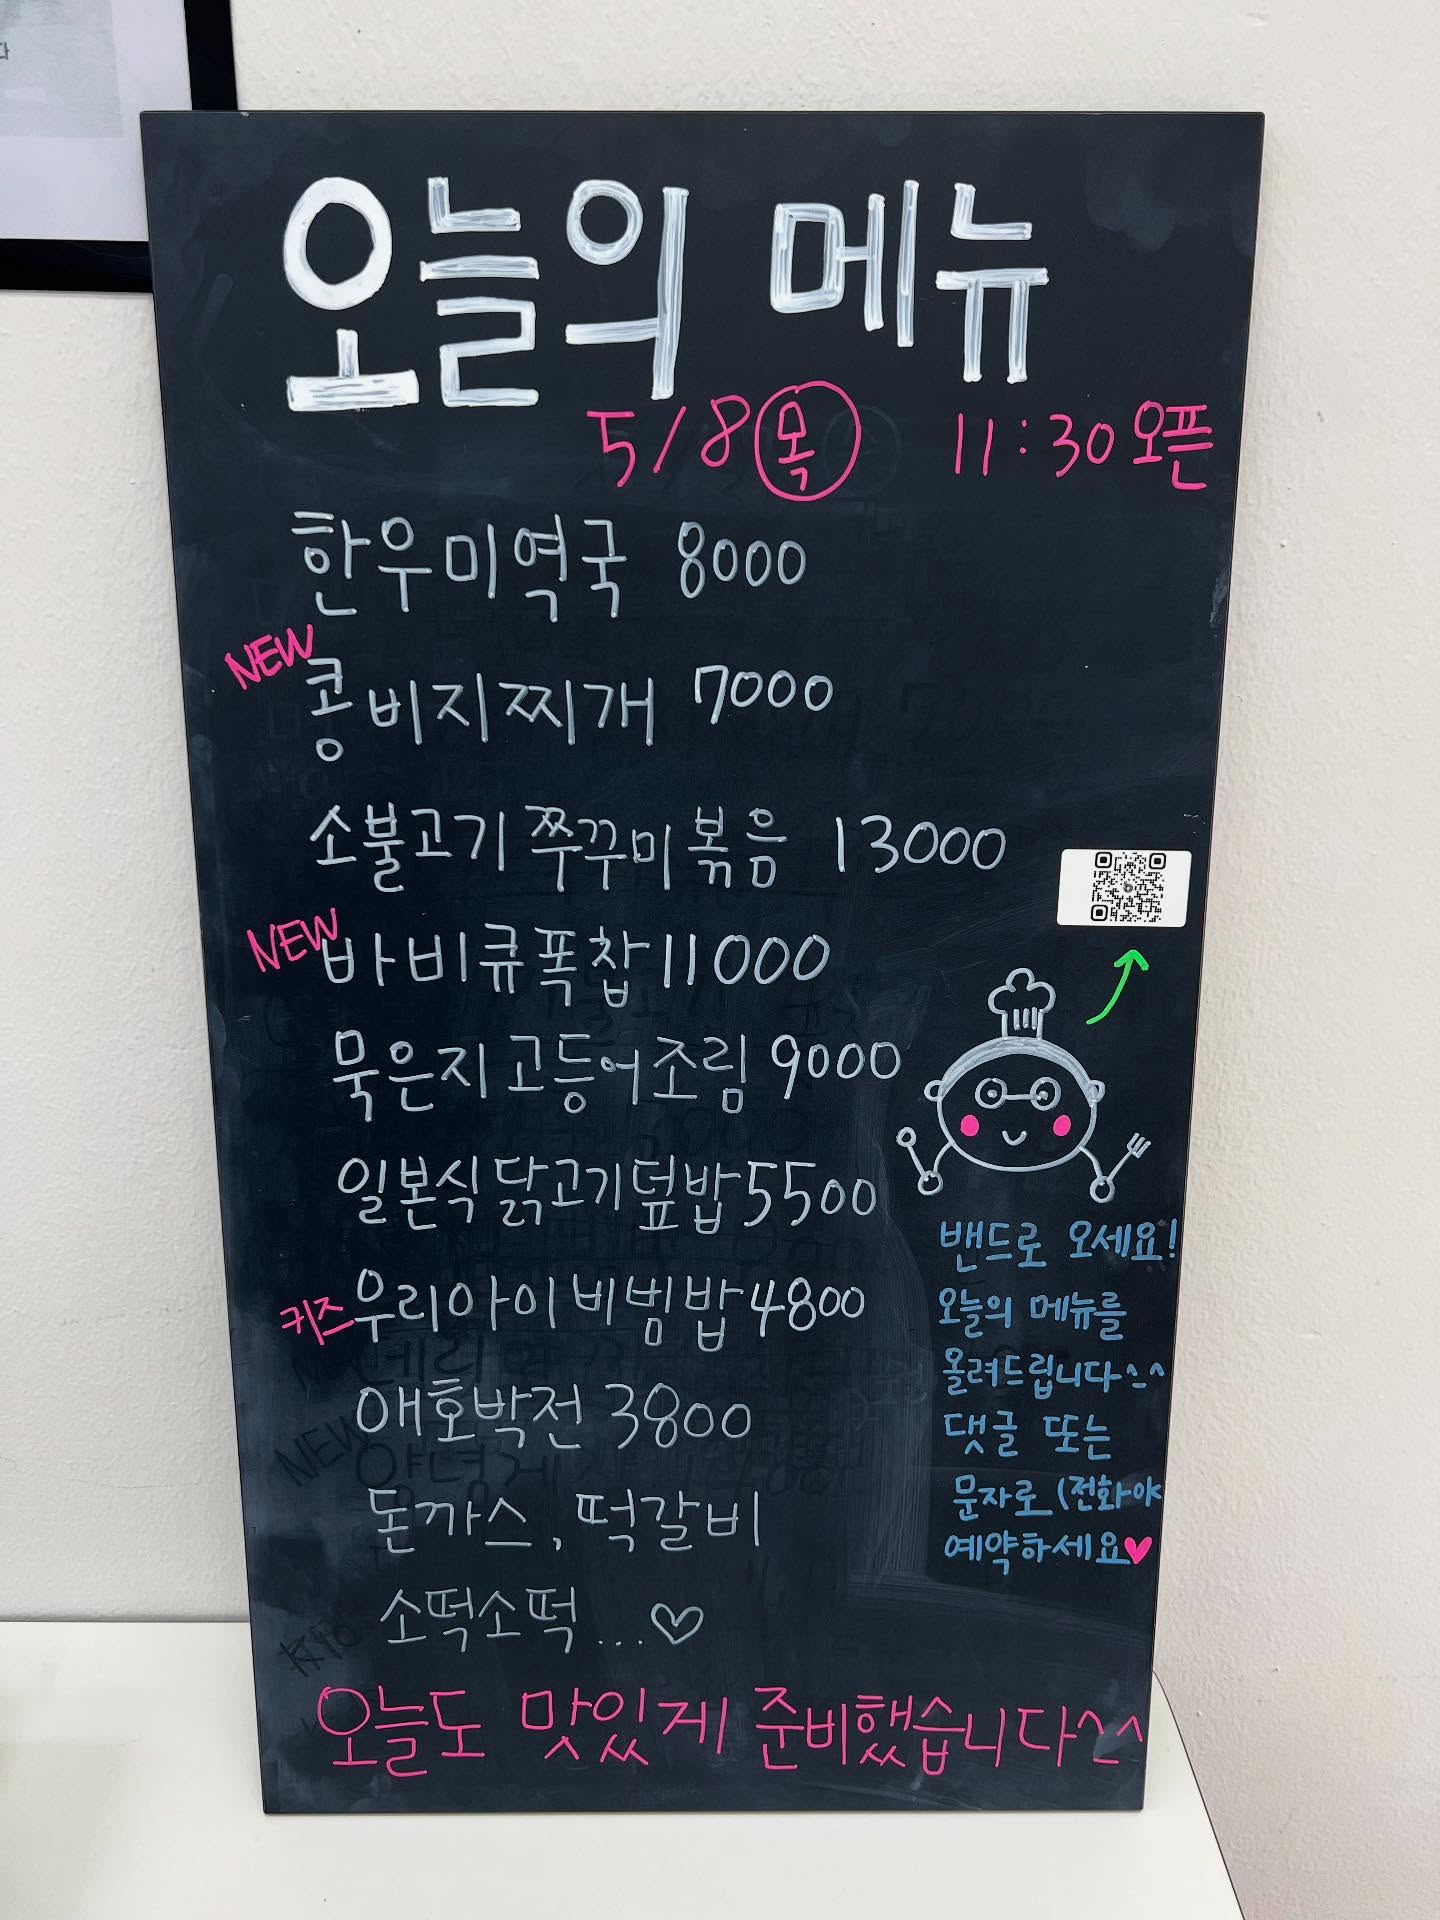 오늘의 메뉴
5/8 목 11:30 오픈
한우미역국 8000
NEW 콩비지찌개 7000
소불고기 쭈꾸미볶음 13000
NEW 바비큐폭찹 11000
묵은지고등어조림 9000
일본식닭고기덮밥 5500
키즈 우리아이비빔밥 4800
애호박전 3800
돈까스, 떡갈비
소떡소떡...♡
오늘도 맛있게 준비했습니다^^
밴드로 오세요!
오늘의 메뉴를
올려드립니다^^
댓글 또는
문자로 (전화아
예약하세요♥